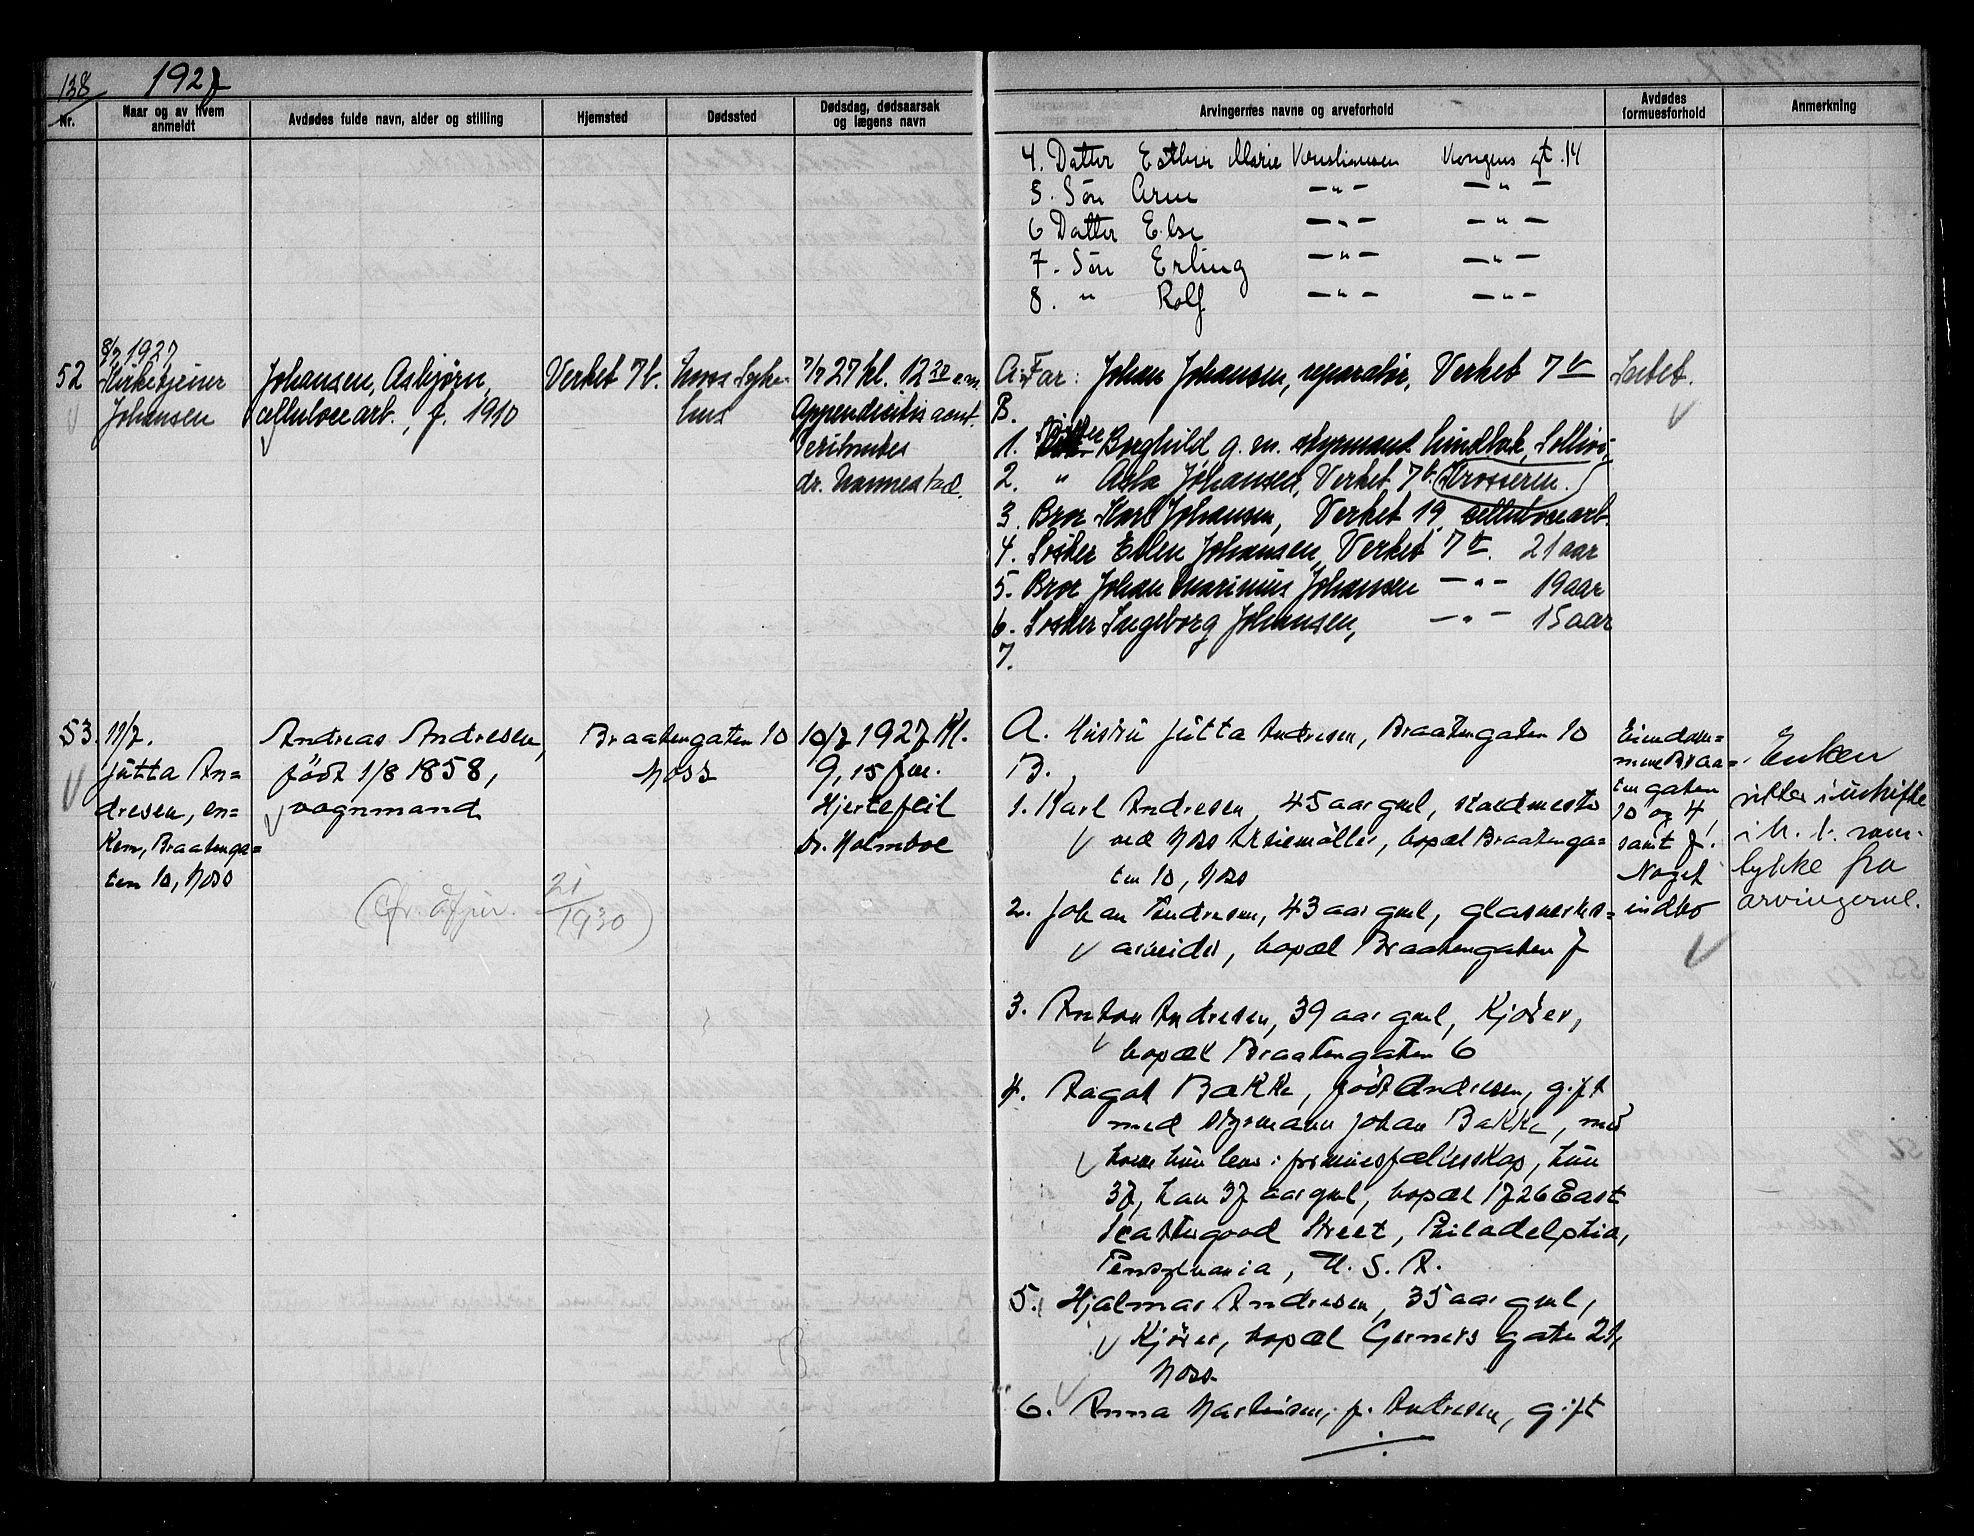 138
1927
Nr.
Naar og av hvem
anmeldt
Avdødes fulde navn, alder og stilling
Hjemsted
Dødssted
Dødsdag, dødsaarsak
og lægens navn
Arvingernes navne og arveforhold
Avdødes
formuesforhold
Anmerkning
4. Datter Esther Marie Kristiansen Kongens gt. 14
5. Søn Arne —"— —"—
6 Datter Else —"— —"—
7. Søn Erling —"— —"—
8. " Rolf —"— —"—
52
8/7 1927
Kirketjener
Johansen
Johansen, Asbjørn,
cellulosearb., f. 1910
Verket 7b.
Moss Syke-
hus
7/7 27 kl. 12 30 em.
Appendicitis acut.
Peritonites
dr. Narmestad.
A. Far: Johan Johansen, reparatør, Verket 7b
B.
1. Søster Borghild, g. m. styrmand Lundbak,
2. " Asta Johansen, Verket 7b.
3. Bror Karl Johansen, Verket 19, cellulosearb.
4. Søster Ellen Johansen, Verket 7b. 21 aar
5. Bror Johan Marinius Johansen —"— 19 aar
6. Søster Ingeborg Johansen, —"— 15 aar
7.
Intet.
53.
11/7.
Jutta An=
dresen, en=
ken, Braatenga=
ten 10, Moss
Andreas Andresen,
født 1/8 1858,
vognmand
(Cfr. 21/1930)
Braatengaten 10
Moss
10/7 1927 Kl.
9,15 fm.
Hjertefeil
Dr. Holmboe
A. Hustru Jutta Andresen, Braatengaten 10
B.
1. Karl Andresen, 45 aar gml, stadmester
ved Moss Aktiemøller, bopæl Braatenga=
ten 10, Moss
2. Johan Andresen, 43 aar gml, glasverks=
arbeider, bopæl Braatengaten 7
3. Anton Andresen, 39 aar gml, Kjører,
bopæl Braatengaten 6
4. Aagot Bakke, født Andresen, gift
med styrmann Johan Bakke, med
hvem hun lever i formuesfællesskap, hun
37, han 37 aar gml, bopæl 1726 East
Scattergood Street, Philadelphia,
Pensylvania, U. S. A.
5. Hjalmar Andresen, 35 aar gml,
Kjører, bopæl Gerners gate 21,
Moss
6. Anna Mathisen, f. Andresen, gift
Eiendom=
mene Braa=
tengaten
10 og 4,
samt 7.
Noget
indbo
Enken
sitter i uskifte
i h. t. sam-
tykke fra
arvingerne.